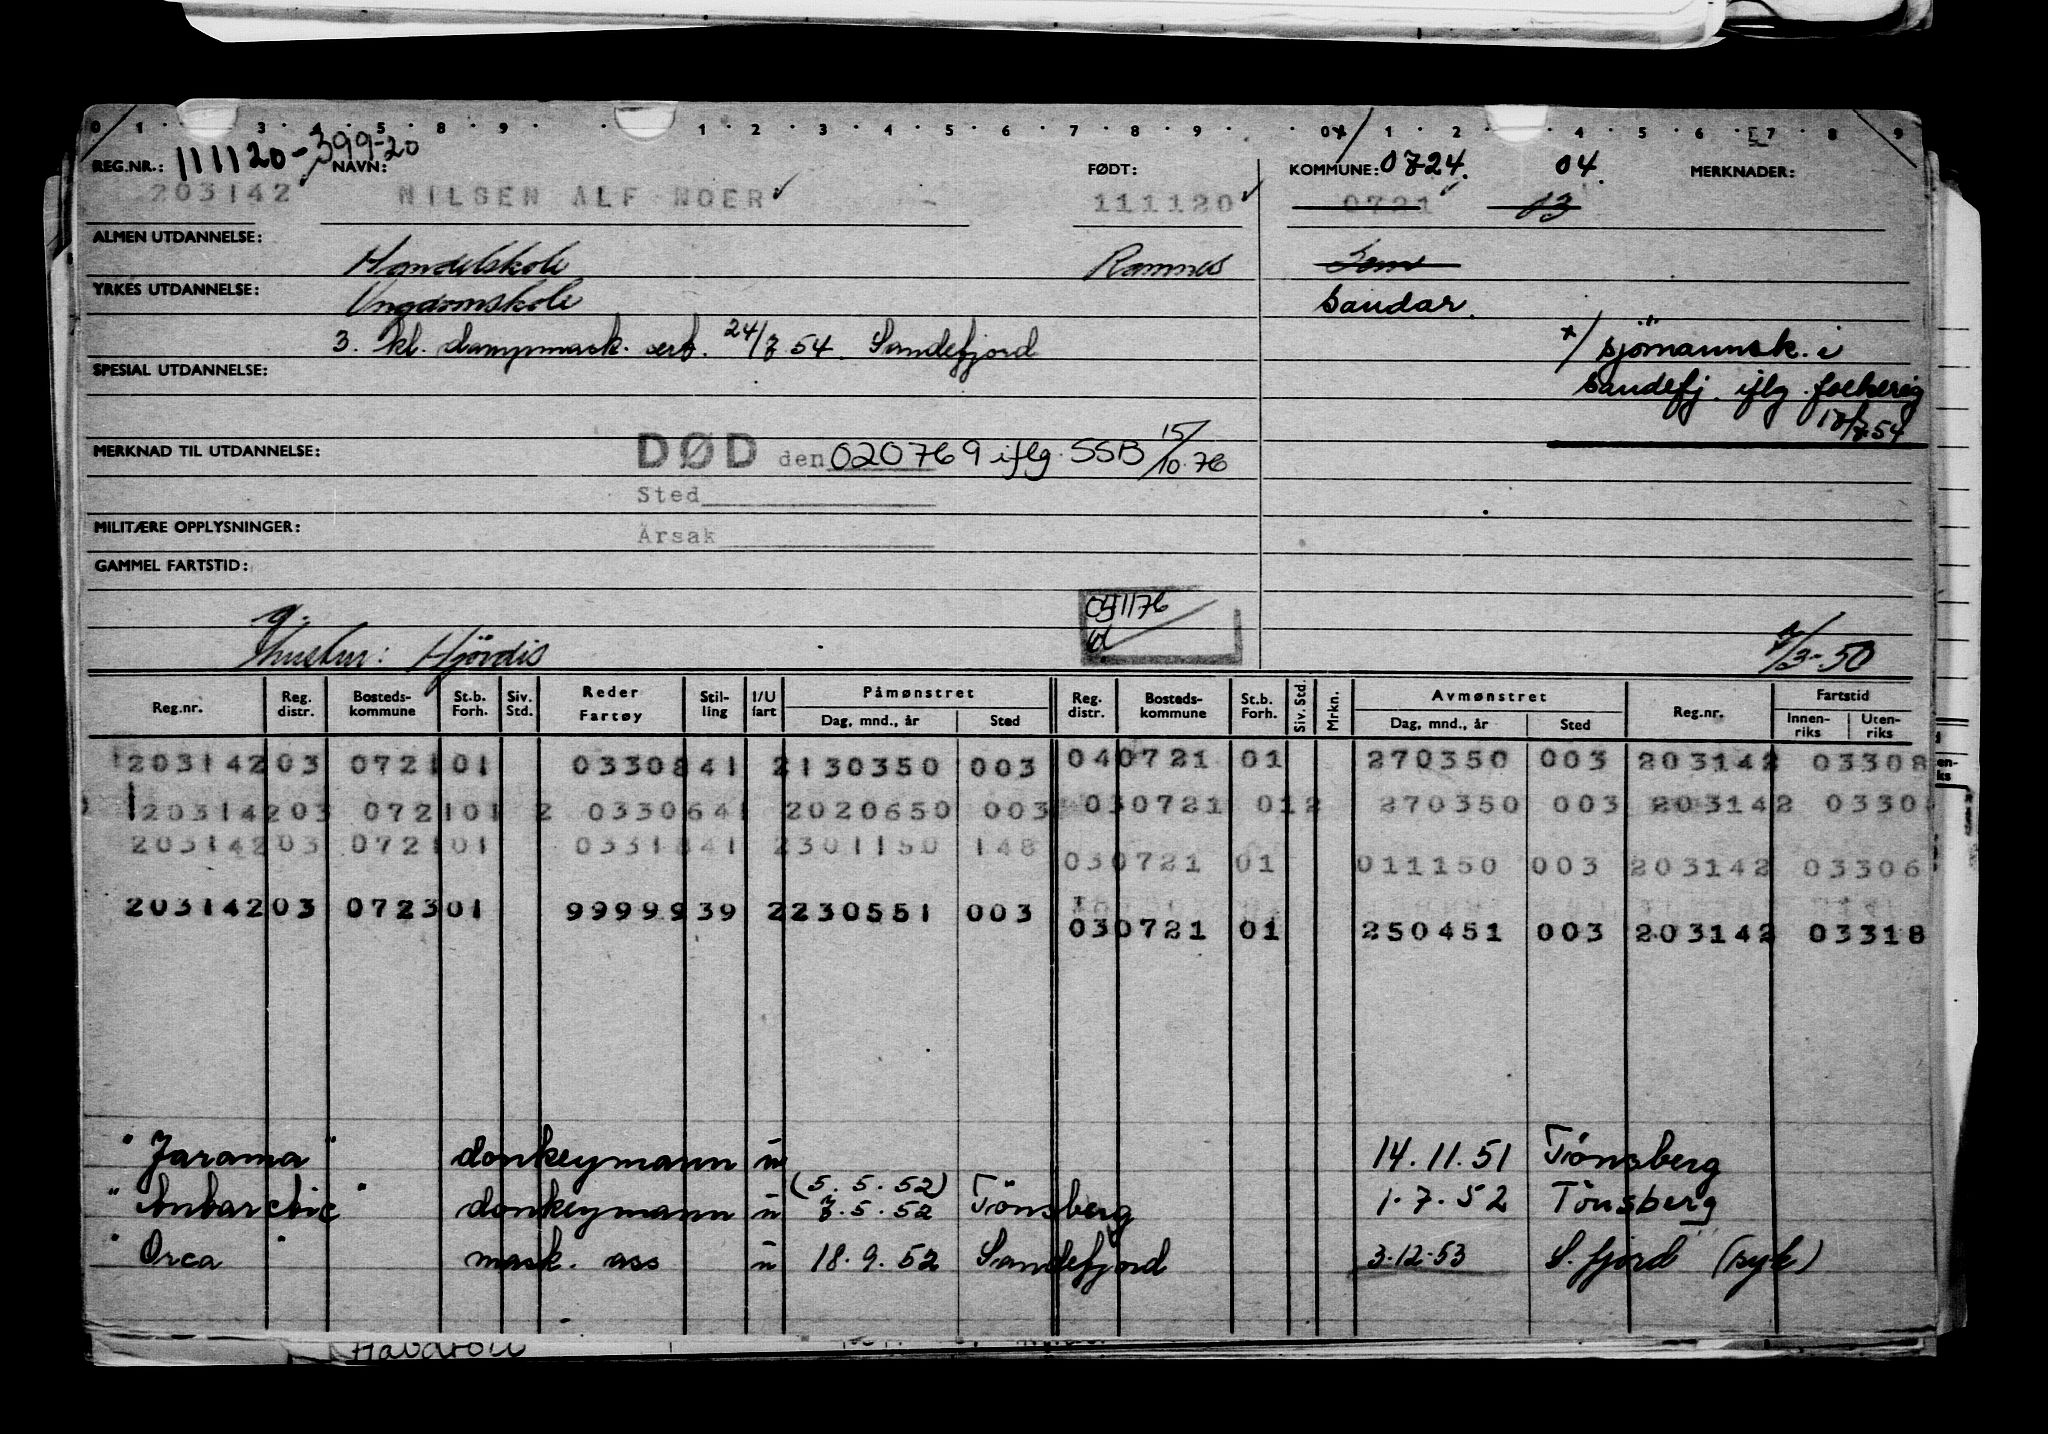 0 1 3 4 5 8 9 1 2 3 4 5 6 7 8 9 0 1 2 4 5 6 7 8 9
REG.NR.: 111120-39920 NAVN: FØDT: KOMMUNE: 0724. 04. MERKNADER:
203142 NILSEN ALF NOER 111120 0721 03
ALMEN UTDANNELSE: Handelskole Ramnes Sem
YRKES UTDANNELSE: Ungdomskole Sandar.
3. kl. dampmask. sert. 24/7 54. Sandefjord x/ sjömannsk. i
SPESIAL UTDANNELSE: Sandefj. iflg. folkereg
17/7 54
MERKNAD TIL UTDANNELSE: DØD den 020769 iflg. SSB 15/10.76
Sted
MILITÆRE OPPLYSNINGER: Årsak
GAMMEL FARTSTID:
041176
g.
hustru: Hjördis /3-50
Reg.nr. Reg. distr. Bosteds-kommune St.b. Forh. Siv. Std. Reder Fartøy Stil-ling I/U fart Påmønstret Dag, mnd., år Sted Reg. distr. Bosteds-kommune St.b. Forh. Siv. Std. Mrkn. Avmønstret Dag, mnd., år Sted Reg.nr. Fartstid Innen-riks Uten-riks
203142 03 0721 01 03308 41 2 130350 003 04 0721 01 270350 003 203142 03308
203142 03 0721 01 2 03306 41 2 020650 003 03 0721 01 2 270350 003 203142 0330
203142 03 0721 01 03318 41 2 301150 148 03 0721 01 011150 003 203142 03306
203142 03 0723 01 99999 39 2 230551 003 03 0721 01 250451 003 203142 03318
"Jarama" donkeymann u 14.11.51 Tönsberg
"Antarctic" donkeymann u (5.5.52) 7.5.52 Tönsberg 1.7.52 Tönsberg
"Orca" mask. ass u 18.9.52 Sandefjord 3.12.53 S.fjord (syk)